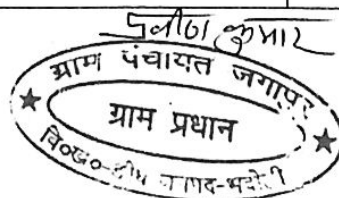 प्रवीण कुमार
ग्राम पंचायत जगापुर
ग्राम प्रधान
वि०ख०-डीघ जनपद-भदोही